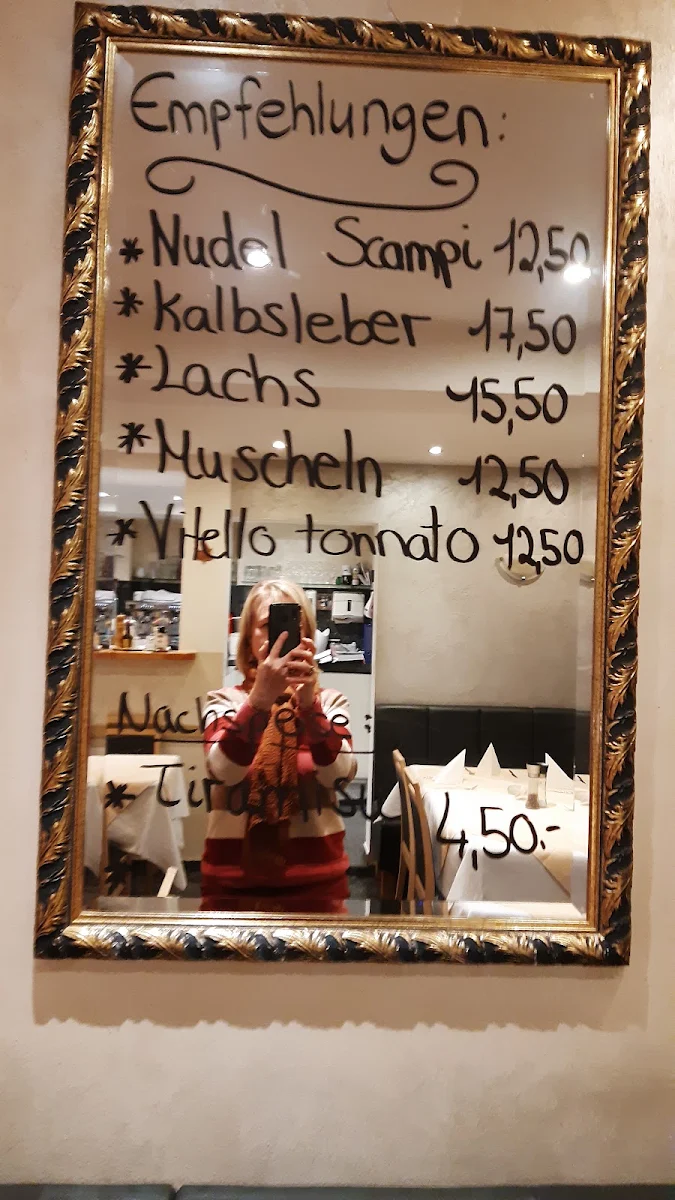 Empfehlungen:
* Nudel Scampi 12,50
* Kalbsleber 17,50
* Lachs 15,50
* Muscheln 12,50
* Vitello tonnato 12,50
Nachspeise:
* Tiramisu 4,50.-
*